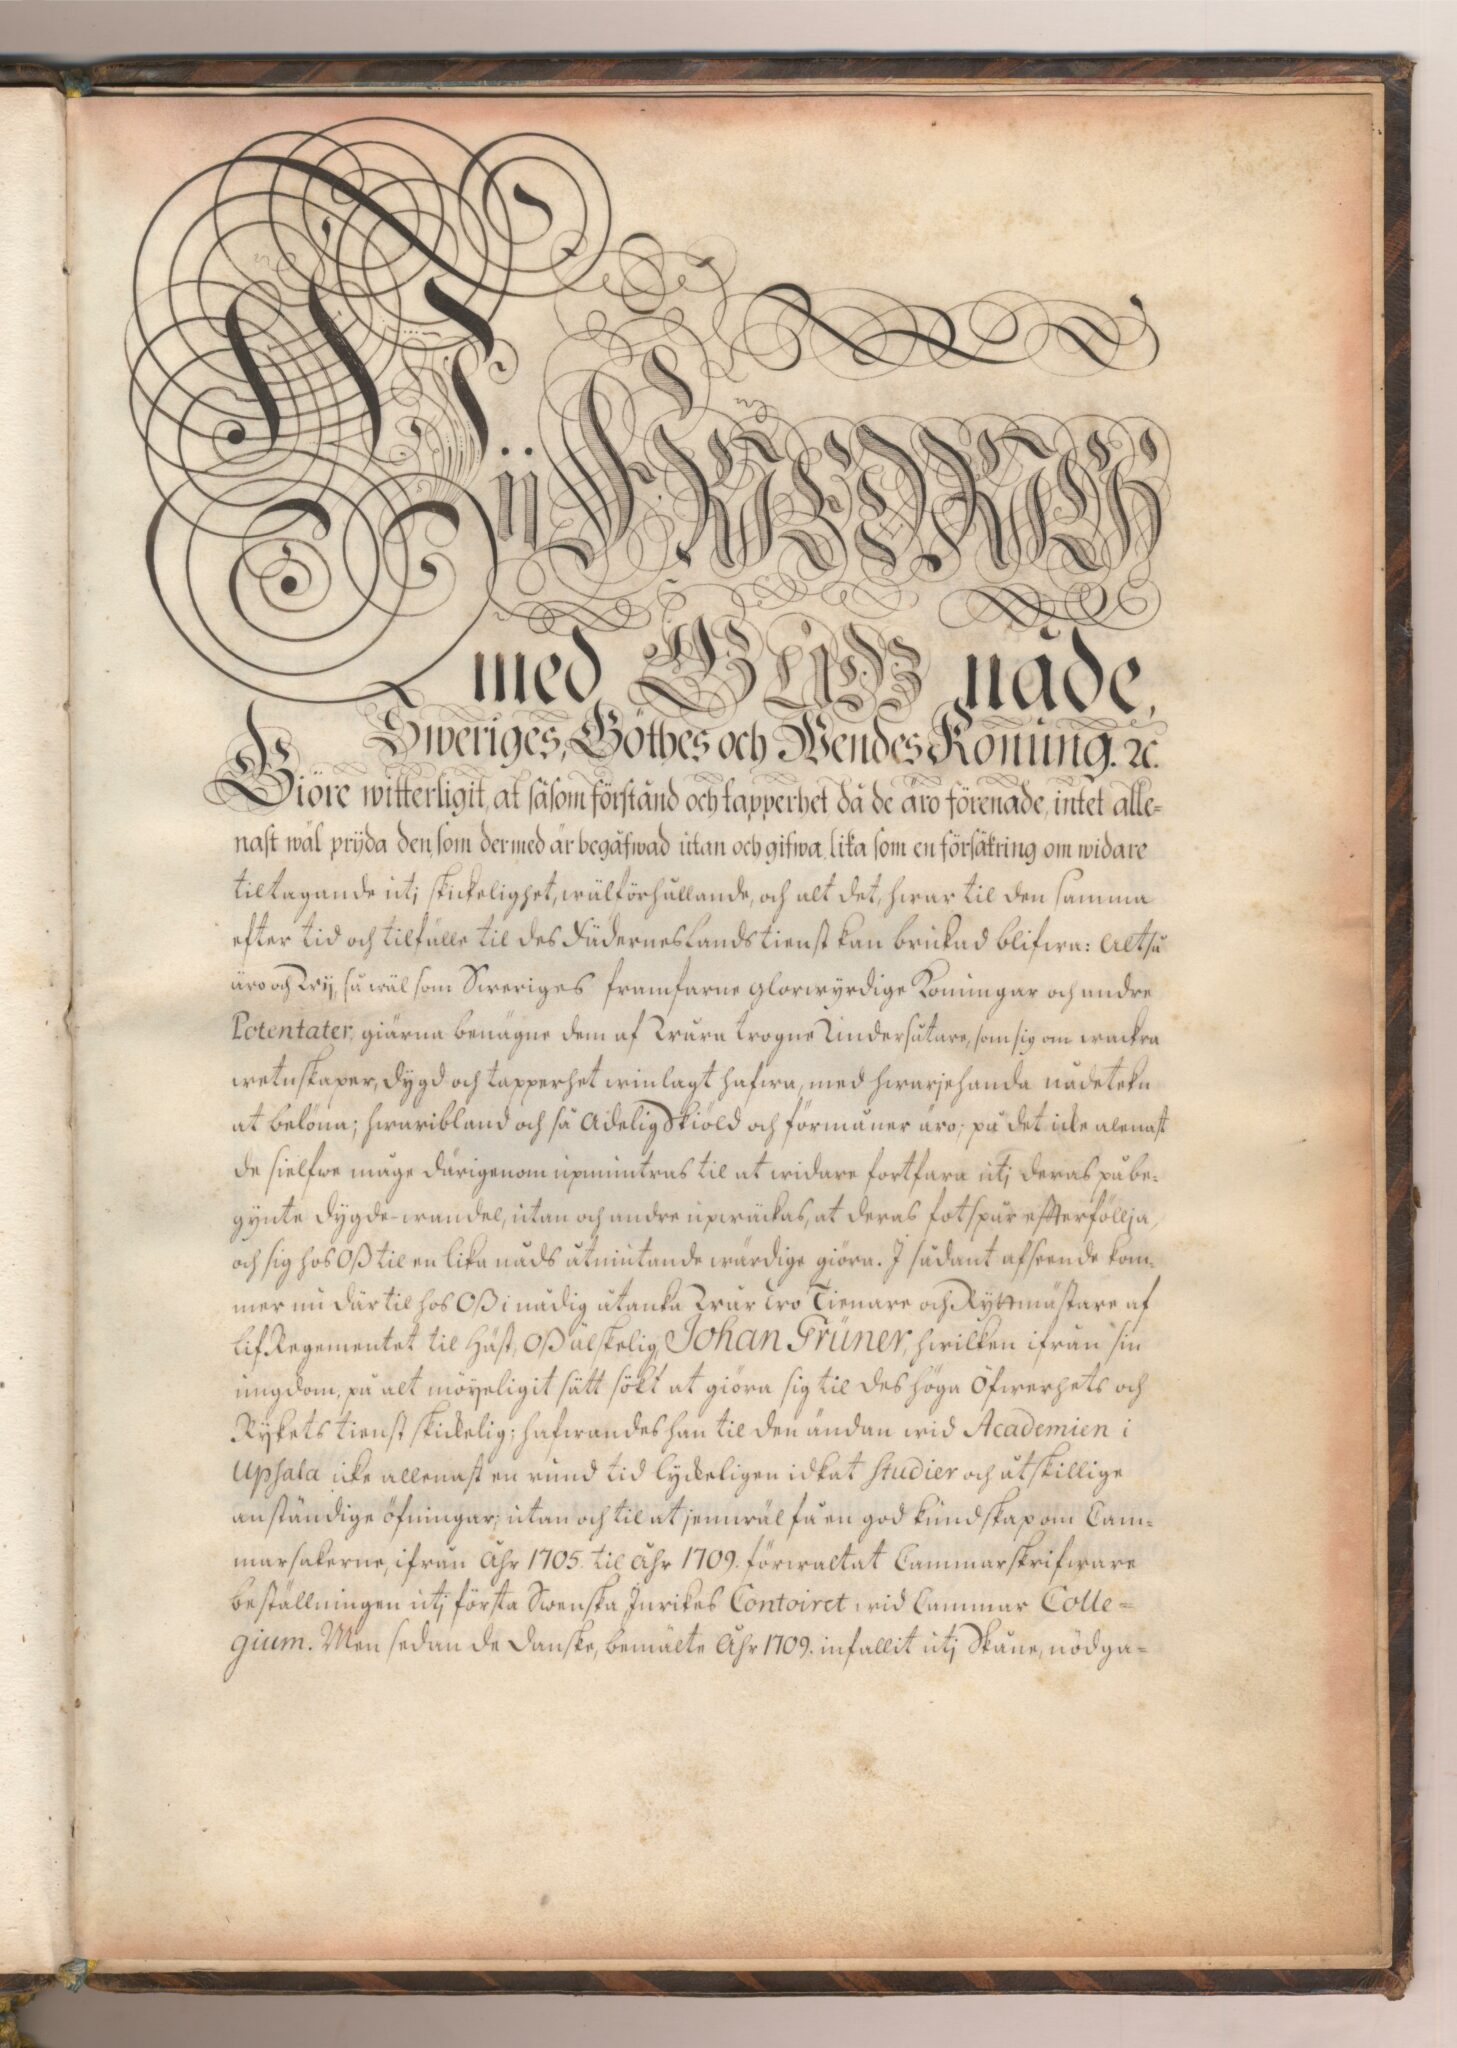 Wii Friedrich
med Gudz nåde,
Sweriges, Göthes och Wendes Konung. &c.
Giöre witterligit, at såsom förstånd och tapperhet då de äro förenade, intet alle-
nast wäl prijda den, som dermed är begåfwad utan och gifwa, lika som en försäkring om widare
tiltagande utj skickelighet, wälförhållande, och alt det, hwar til den samma
efter tid och tilfälle til des Fäderneslands tienst kan brukad blifwa: Altså
äro och Wij, så wäl som Sweriges framfarne Glorwyrdige Konungar och andre
Potentater, giärna benägne dem af Wåra trogne Undersåtare, som sig om wackra
wetnskaper, dygd och tapperhet winlagt hafwa, med hwarjehanda nådetekn
at belöna; hwaribland och så Adelig Skiöld och förmåner äro; på det icke alenast
de sielfwe måge därigenom upmuntras til at widare fortfara utj deras påbe-
gynte dygde-wandel, utan och andre upwäckas, at deras fotspår efterföllja,
och sig hos Oß til en lika nåds åtniutande wärdige giöra. I sådant afseende kom-
mer nu därtil hos Oß i nådig åtanka Wår tro Tienare och Ryttmästare af
Lif Regementet til Häst, Oß älskelig Johan Grüner, hwilken ifrån sin
ungdom, på alt möyeligit sätt sökt at giöra sig til des höga Öfwerhets och
Rykets tienst skickelig; hafwandes han til den ändan wid Academien i
Upsala icke allenast en rund tid lyckeligen idkat Studier och åtskillige
anständige öfningar; utan och til at jemwäl få en god kundskap om Cam-
marsakerne, ifrån Åhr 1705. til Åhr 1709. förwaltat Cammarskrifware
beställningen utj första Swenska Inrikes Contoiret wid Cammar Colle-
gium. Men sedan de Danske, bemälte Åhr 1709. infallit utj Skåne, nödga-